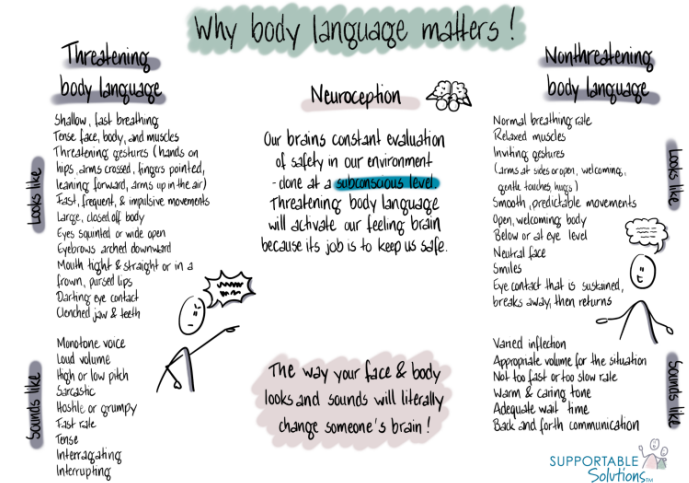 Why body language matters!
Threatening
body language
Looks like
Shallow, fast breathing
Tense face, body, and muscles
Threatening gestures (hands on
hips, arms crossed, fingers pointed,
leaning forward, arms up in the air)
Fast, frequent, & impulsive movements
Large, closed off body
Eyes squinted or wide open
Eyebrows arched downward
Mouth tight & straight or in a
frown, pursed lips
Darting eye contact
Clenched jaw & teeth
Sounds like
Monotone voice
Loud volume
High or low pitch
Sarcastic
Hostile or grumpy
Fast rate
Tense
Interragating
Interrupting
Neuroception
Our brains constant evaluation
of safety in our environment
- done at a subconscious level.
Threatening body language
will activate our feeling brain
because its job is to keep us safe.
The way your face & body
looks and sounds will literally
change someone's brain!
Nonthreatening
body language
Looks like
Normal breathing rate
Relaxed muscles
Inviting gestures
(arms at sides or open, welcoming,
gentle touches, hugs)
Smooth, predictable movements
Open, welcoming body
Below or at eye level
Neutral face
Smiles
Eye contact that is sustained,
breaks away, then returns
Sounds like
Varied inflection
Appropriate volume for the situation
Not too fast or too slow rate
Warm & caring tone
Adequate wait time
Back and forth communication
SUPPORTABLE
Solutions